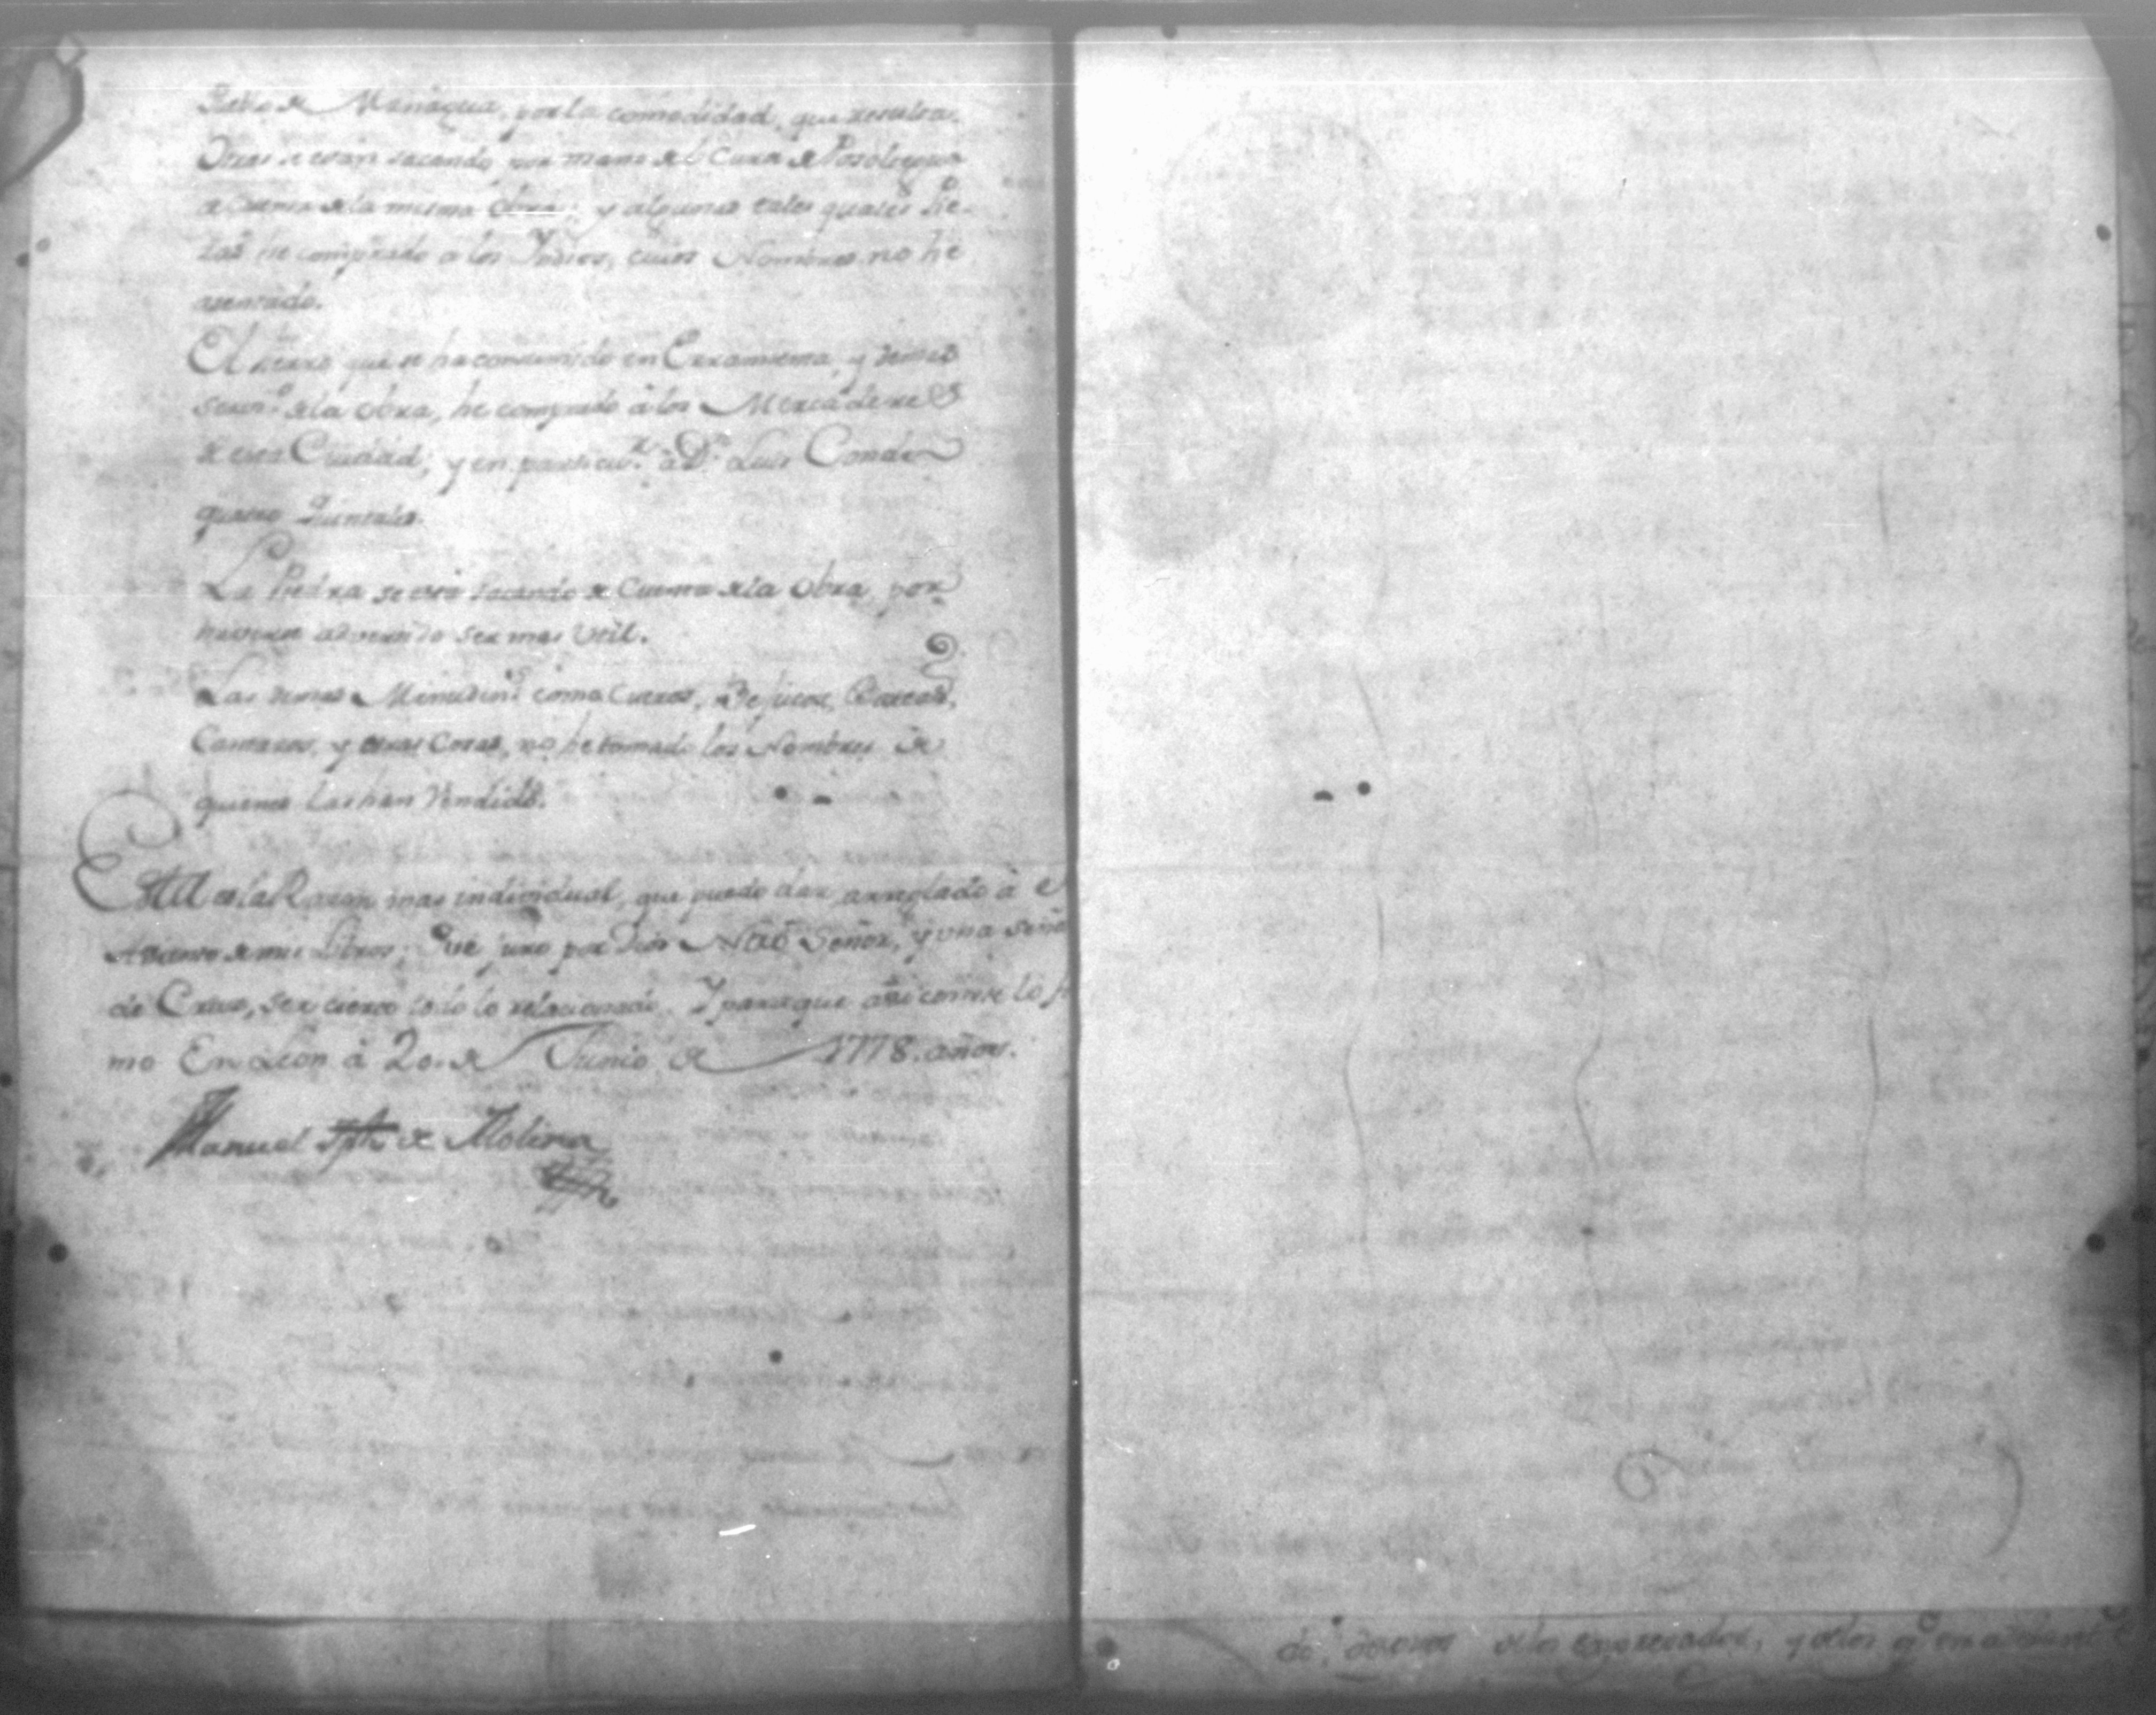 de Managua, por la comodidad, que resulta.
Otras se estan sacando por mano del Cura de Posoltegua
a Cuenta de la misma Obra; y algunas tales quales
he comprado a los Yndios, cuios Nombres no he
asentado.
El que se ha consumido en Erramienta, y demas
de la obra, he comprado à los Mercaderes
de esta Ciudad; y en particulr. à Dn. Luis Conde
quatro Quintales.
La Piedra se está sacando de Cuenta de la Obra, por
haverse advertido ser mas Vtil.
Las demas como Cueros, Bejucos, Bateas,
Cantaros, y otras Cosas, no he tomado los Nombres de
quienes las han Vendido.
Esta es la Razon mas individual, que puedo dar, arreglado à el
de mis Libros; Que juro por Dios Ntrô Señor, y una señal
de Cruz, ser cierto todo lo relacionado. Y para que asi conste lo fir
mo En Leon à 20. de Junio de 1778. años.
Manuel Jph de Molina
de los expresados, y de los qe.